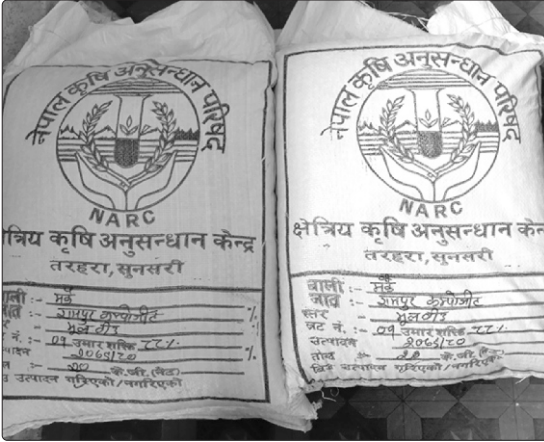 नेपाल कृषि अनुसन्धान परिषद्
NARC
त्रिय कृषि अनुसन्धान केन्द्र
तरहरा, सुनसरी
ाली :- मकै
ात :- रामपुर कम्पोजीट
- मूल वीउ %
नं. :- ०१ उमार शक्ति ८८% %
२०७९/८०
:- २० के.जी.
उत्पादन गरिएको/नगरिएको
नेपाल कृषि अनुसन्धान परिषद्
NARC
क्षेत्रिय कृषि अनुसन्धान केन
तरहरा, सुनसरी
बाली :- मकै
जात :- रामपुर कम्पोजीट
स्तर - मूल वीउ
लट नं. :- ०१ उमार शक्ति ८८%
उत्पादन
तौल :- २० के.जी.
उत्पादन गरिएको/नगरिएको